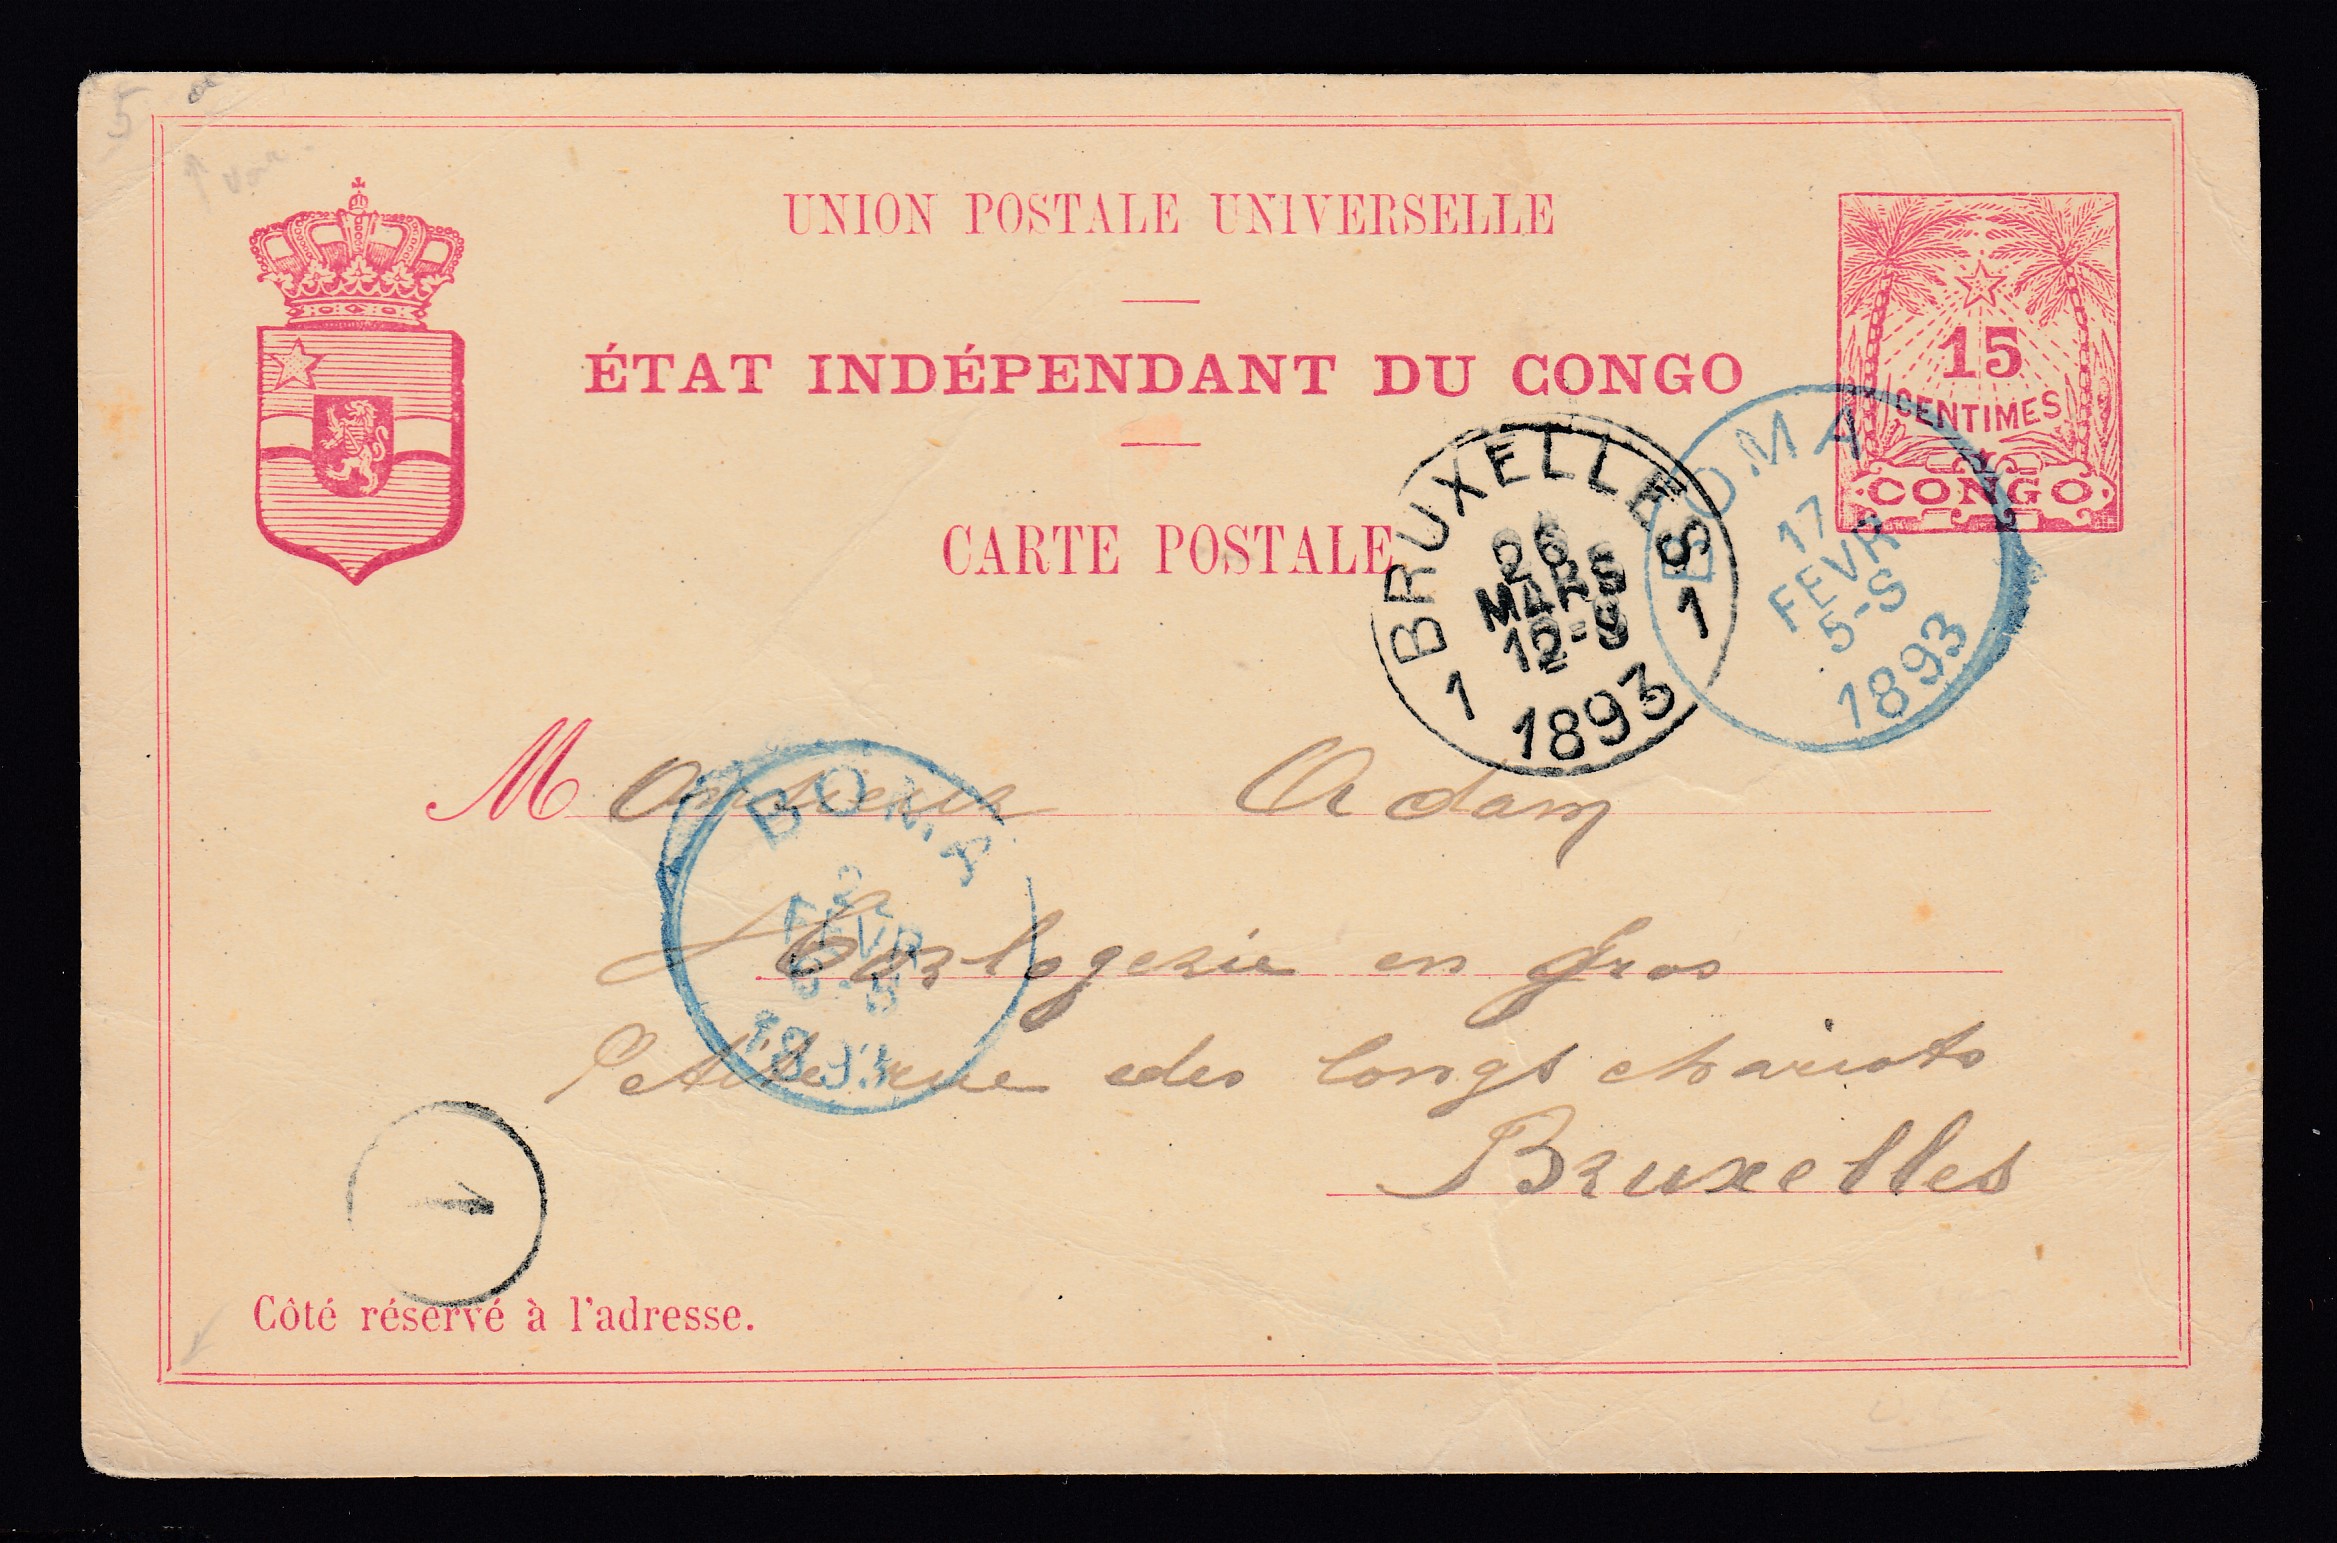 5
UNION POSTALE UNIVERSELLE
ÉTAT INDÉPENDANT DU CONGO
CARTE POSTALE
15
CENTIMES
CONGO
BRUXELLES
26
MARS
1 1
1893
BOMA
17
FEVR
5-S
1893
Monsieur Adam
BOMA
FEVR
1893
Horlogerie en Gros
Petite rue des longs chariots
Bruxelles
1
Côté réservé à l'adresse.